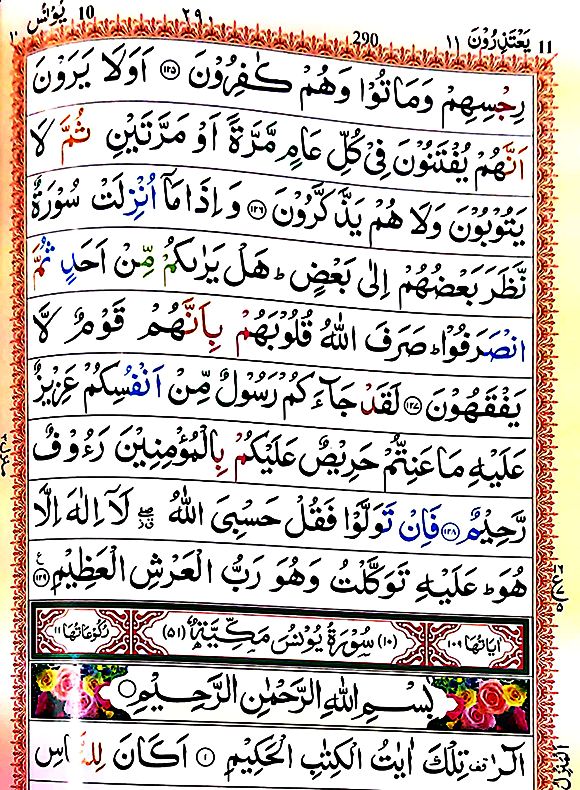 11 يَعْتَذِرُوْنَ ١١ 290 ٢٩٠ 10 يُوْنُس ١٠
رِجْسِهِمْ وَمَاتُوْا وَهُمْ كٰفِرُوْنَ ١٢٥ اَوَلَا يَرَوْنَ
اَنَّهُمْ يُفْتَنُوْنَ فِيْ كُلِّ عَامٍ مَّرَّةً اَوْ مَرَّتَيْنِ ثُمَّ لَا
يَتُوْبُوْنَ وَلَا هُمْ يَذَّكَّرُوْنَ ١٢٦ وَاِذَا مَاۤ اُنْزِلَتْ سُوْرَةٌ
نَّظَرَ بَعْضُهُمْ اِلٰى بَعْضٍ ؕ هَلْ يَرٰىكُمْ مِّنْ اَحَدٍ ثُمَّ
انْصَرَفُوْا ؕ صَرَفَ اللّٰهُ قُلُوْبَهُمْ بِاَنَّهُمْ قَوْمٌ لَّا
يَفْقَهُوْنَ ١٢٧ لَقَدْ جَآءَكُمْ رَسُوْلٌ مِّنْ اَنْفُسِكُمْ عَزِيْزٌ
عَلَيْهِ مَا عَنِتُّمْ حَرِيْصٌ عَلَيْكُمْ بِالْمُؤْمِنِيْنَ رَءُوْفٌ
رَّحِيْمٌ ١٢٨ فَاِنْ تَوَلَّوْا فَقُلْ حَسْبِيَ اللّٰهُ لَاۤ اِلٰهَ اِلَّا
هُوَ ؕ عَلَيْهِ تَوَكَّلْتُ وَهُوَ رَبُّ الْعَرْشِ الْعَظِيْمِ ١٢٩
اٰيَاتُهَا ١٠٩ (١٠) سُوْرَةُ يُوْنُسَ مَكِّيَّةٌ (٥١) رُكُوْعَاتُهَا ١١
بِسْمِ اللّٰهِ الرَّحْمٰنِ الرَّحِيْمِ
الٓرٰ قف تِلْكَ اٰيٰتُ الْكِتٰبِ الْحَكِيْمِ ١ اَكَانَ لِلنَّاسِ